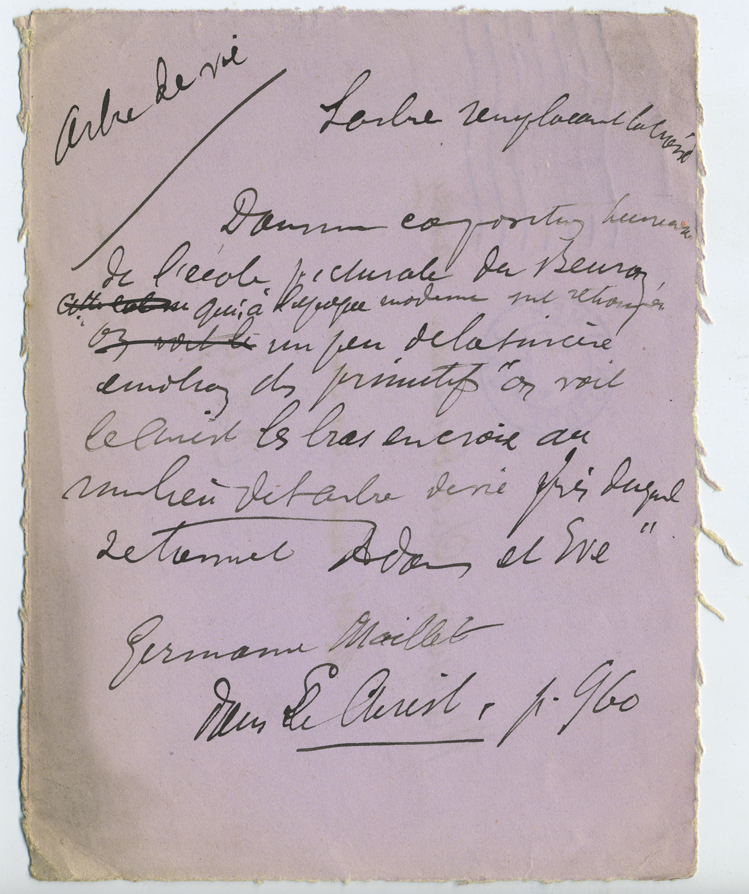 Arbre de vie
L'arbre remplaçant la croix
Dans une composition
de l'école picturale de Beuron
qui, à l'époque moderne ont retrouvé
un peu de la sincère
émotion des primitifs "on voit
le Christ les bras en croix au
milieu de l'arbre de vie près duquel
se tiennent Adam et Eve"
Germaine Maillet
dans Le Christ, p. 960